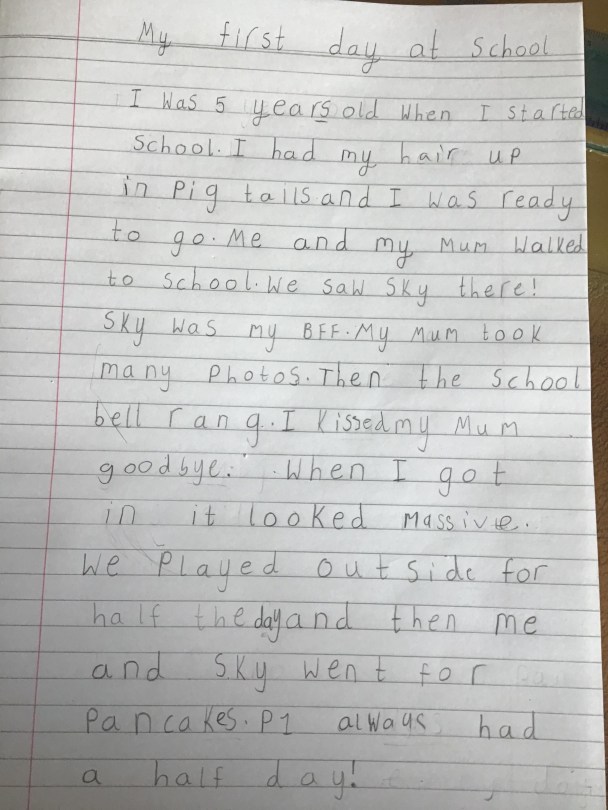 My first day at School
I was 5 years old when I started
School. I had my hair up
in pig tails and I was ready
to go. Me and my mum walked
to School. We saw Sky there!
Sky was my BFF. My mum took
many photos. Then the school
bell rang. I kissed my mum
goodbye. When I got
in it looked massive.
We played outside for
half the day and then me
and Sky went for
pancakes. P1 always had
a half day!